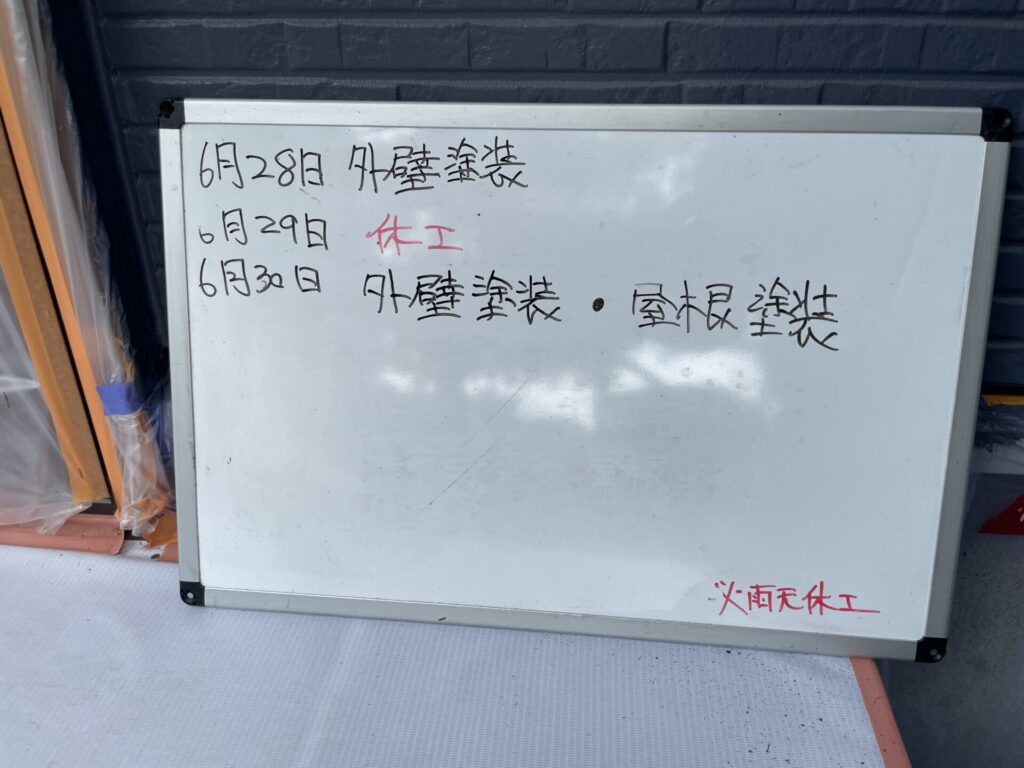 6月28日 外壁塗装
6月29日 休工
6月30日 外壁塗装・屋根塗装
※雨天休工